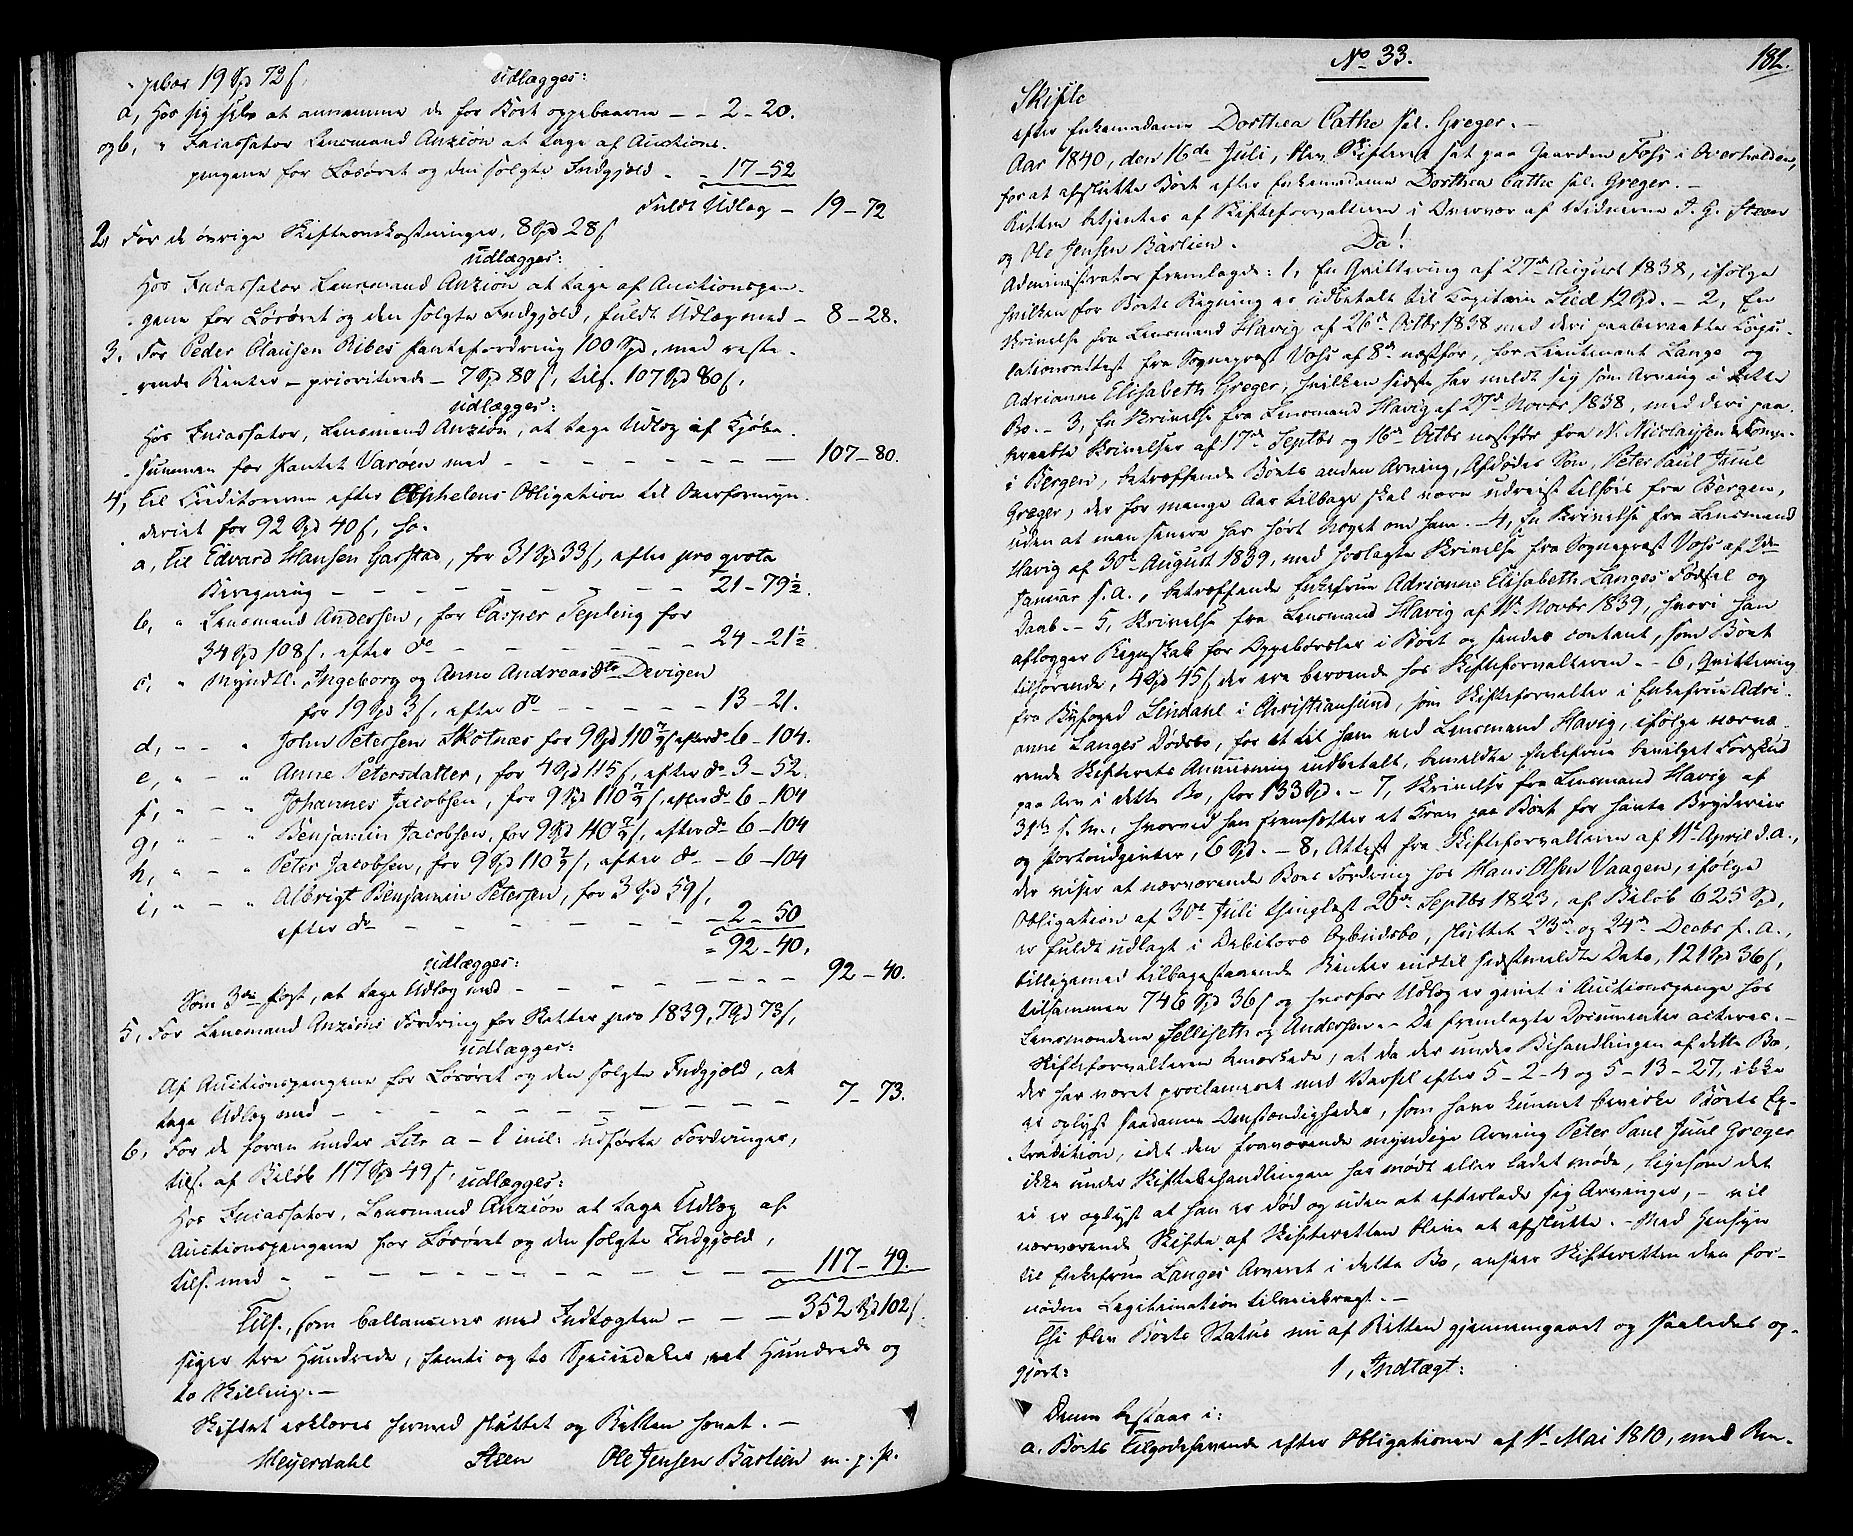 19 Spd 72 s,
udlægges:
a, hos sig selv at annamme de for Boet oppebaarne – – 2-20.
og b, " Incassator Lensmand Anzion at tage af Auctions-
pengene for Løsøret og den solgte Indgjæld – 17-52
Fuldt Udlæg – 19-72
2, For de øvrige Skifteomkostninger, 8 Spd 28 s
udlægges:
hos Incassator Lensmand Anzion at tage af Auctionspen-
gene for Løsøret og den solgte Indgjæld, fuldt Udlæg med – 8-28.
3, For Peder Clausen Ribes Pantefordring 100 Spd, med reste-
rende Renter – prioriterede – 7 Spd 80 s, tils. 107 Spd 80 s,
udlægges:
hos Incassator, Lensmand Anzion, at tage Udlæg af Kjøbe-
summen for Pantet Varøen med – – – 107-80.
4, til Creditorerne efter Obligation til Overformyn-
deriet for 92 Spd 40 s,
a, til Edvard Hansen Garstad, for 31 Spd 33 s, efter pro qvota
Beregning – – – 21-79½
b, " Lensmand Andersen, for Casper Tepling for
34 Spd 108 s, efter do – – – 24-21½
c, " Myndtl. Ingeborg og Anne Andreasdtr Devigen
for 19 Spd 3 s, efter do – – – 13-21.
d, " – " John Petersen Skotnæs for 9 Spd 110 7/9 s efter do – 6-104.
e, " – " Anne Petersdatter, for 4 Spd 115 s, efter do – 3-52.
f, " – " Johannes Jacobsen, for 9 Spd 110 7/9 s, efter do – 6-104
g, " – " Benjamin Jacobsen, for 9 Spd 40 7/9 s, efter do – 6-104
h, " – " Peter Jacobsen, for 9 Spd 110 7/9 s, efter do – 6-104
i, " – " Albrigt Benjamin Petersen, for 3 Spd 59 s,
efter do – – – 2-50
92-40,
udlægges:
Som 3die Post, at tage Udlæg med – – – 92-40.
5, For Lensmand Anzions Fordring for Skatter pro 1839, 7 Spd 73 s,
udlægges:
Af Auctionspengene for Løsøret og den solgte Indgjæld, at
tage Udlæg med – – – 7-73.
6, For de foran under Litr a – l incl: udførte Fordringer,
tils. af Beløb 117 Spd 49 s, udlægges:
hos Incassator, Lensmand Anzion at tage Udlæg af
Auctionspengene for Løsøret og den solgte Indgjæld,
tils. med – – – 117-49.
Tils., som ballancerer med Indtægten – – – 352 Spd 102 s
siger tre Hundrede, femti og to Speciedaler, et Hundrede og
to Skilling. –
Skiftet erklæres hermed sluttet og Retten hævet. –
Meyerdahl Steen Ole Jensen Bastien m. p. P.
No 33.
182.
Skifte
efter Enkemadame Dorthea Cathe sal. Greger. –
Aar 1840, den 16de Juli, blev Skifteret sat paa Gaarden Foss i Overhalden,
for at afslutte Boet efter Enkemadame Dorthea Cathe sal. Greger. –
Retten betjentes af Skifteforvalteren i Overvær af Vidnerne J. G. Steen
og Ole Jensen Bastien. Da!
Administrator fremlagde: 1, En Qvittering af 27de August 1838, ifølge
hvilken for Boets Regning er udbetalt til Capitain Lied 12 Spd. – 2, En
Skrivelse fra Lensmand Havig af 26de Octbr 1838 med deri paaberaabte Copu-
lationsattest fra Sognepræst Voss af 8de næstfør, for Lieutenant Lange og
Adrianne Elisabeth Greger, hvilken sidste har meldt sig som Arving i dette
Bo. – 3, En Skrivelse fra Lensmand Havig af 27de Novbr 1838, med deri paa-
beraabte Skrivelser af 17de Septbr og 16de Octbr næstfør fra N. Nicolaysen & Comp.
i Bergen, betræffende Boets anden Arving, Afdødes Søn, Peter Paul Juul
Greger, der for mange Aar tilbage skal være udreist tilsøes fra Bergen,
uden at man senere har hørt Noget om ham. – 4, En Skrivelse fra Lensmand
Havig af 30te August 1839, med fremlagte Skrivelse fra Sognepræst Voss af 2den
Januar s. A., betræffende Enkefrue Adrianne Elisabeth Langes Fødsel og
Daab. – 5, Skrivelse fra Lensmand Havig af 11te Novbr 1839, hvori han
aflægger Regnskab for Oppebørsler i Boet og sender contant, som Boet
tilhørende, 4 Spd 45 s, der ere beroende hos Skifteforvalteren. – 6, Qvittering
fra Byfoged Lindahl i Christiansund, som Skifteforvalter i Enkefrue Adri-
anne Langes Dødsbo, for at til ham ved Lensmand Havig, ifølge nærvæ-
rende Skifterets Anviisning indbetalt, bemeldte Enkefrue bevilget Forskud
paa Arv i dette Bo, stor 133 Spd. – 7, Skrivelse fra Lensmand Havig af
31te f. M., hvorved han fremsætter et Krav paa Boet for havte Bryderier
og Portoudgivter, 6 Spd. – 8, Attest fra Skifteforvalteren af 11te April d. A.,
der viser at nærværende Boes Fordring hos Hans Olsen Vaagen, ifølge
Obligation af 30te Juli thinglæst 20de Septbr 1823, af Beløb 625 Spd,
er fuldt udlagt i Debitors Opbudsbo, sluttet 23de og 24de Decbr f. A.,
tilligemed tilbagestaaende Renter indtil sidstmeldte Dato, 121 Spd 36 s,
tilsammen 746 Spd 36 s og hvorfor Udlæg er givet i Auctionspenge hos
Lensmændene Selliseth og Andersen. – De fremlagte Documenter acteres. –
Skifteforvalteren bemærkede, at da der under Behandlingen af dette Bo,
der har været proclameret med Varsel efter 5-2-4 og 5-13-27, ikke
er oplyst saadanne Omstændigheder, som have kunnet bevirke Boets Ex-
tradition, idet den fraværende myndige Arving Peter Paul Juul Greger
ikke under Skiftebehandlingen har mødt eller ladet møde, ligesom det
ei er oplyst at han er død og uden at efterlade sig Arvinger, – vil
nærværende Skifte af Skifteretten blive at afslutte. – Med Hensyn
til Enkefrue Langes Arveret i dette Bo, anseer Skifteretten den for-
nødne Legitimation tilveiebragt. –
Thi blev Boets Status nu af Retten gjennemgaaet og saaledes op-
gjort: 1, Indtægt:
Denne bestaar i:
a. Boets Tilgodehavende efter Obligationen af 1ste Mai 1810, med Ren-